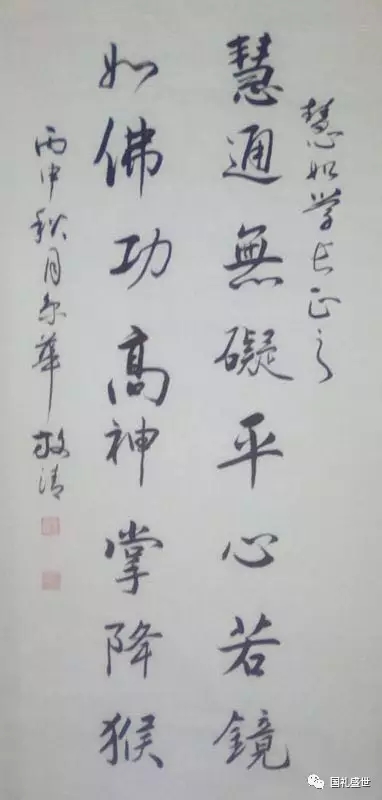 慧如学长正之
慧通無礙平心若鏡
如佛功高神掌降猴
丙申秋月京華敬清
国礼盛世